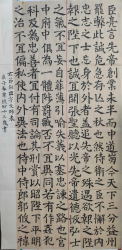 臣亮言先帝創業未半而中道崩殂今天下三分益州
疲弊此誠危急存亡之秋也然侍衛之臣不懈於內
忠志之士忘身於外者蓋追先帝之殊遇欲報之
於陛下也誠宜開張聖聽以光先帝遺德恢弘志士
之氣不宜妄自菲薄引喻失義以塞忠諫之路也宮
中府中俱為一體陟罰臧否不宜異同若有作姦犯
科及為忠善者宜付有司論其刑賞以昭陛下平明
之治不宜偏私使內外異法也侍中侍郎郭攸之